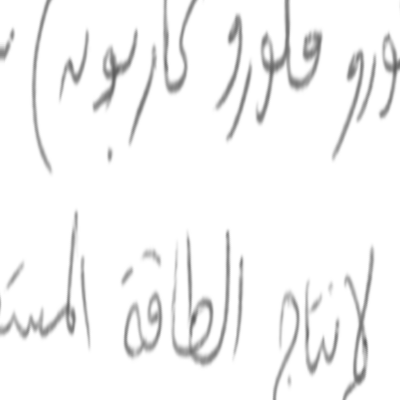 ورو فلورو كاربون)
لإنتاج الطاقة المست